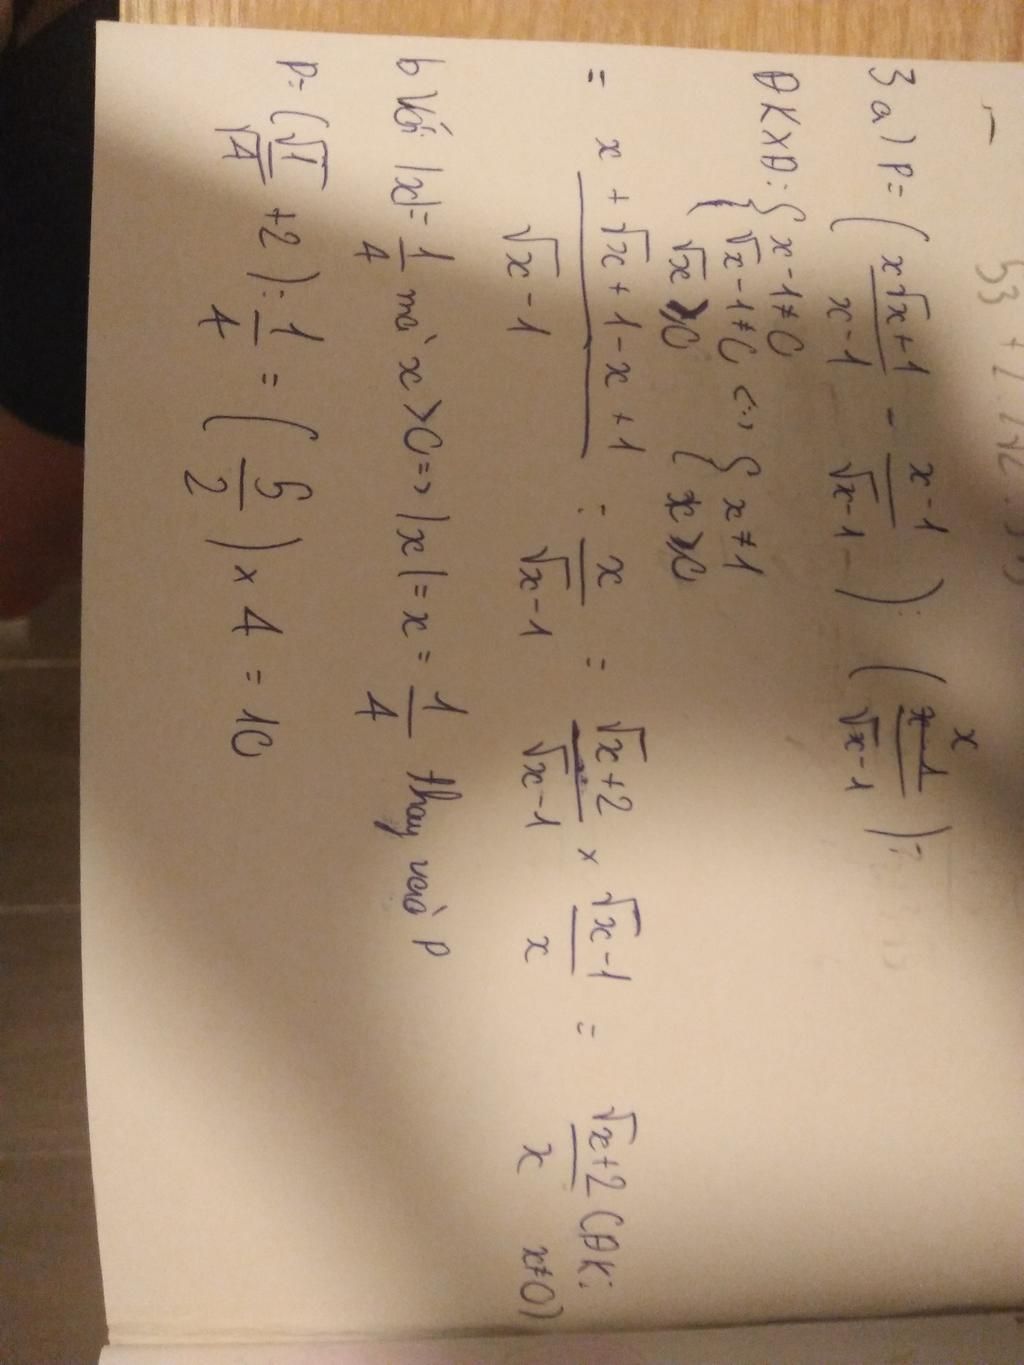 3 a) P = ( x√x+1 / x-1 - x-1 / √x-1 ) : ( x / √x-1 ) =
ĐKXĐ: { x-1≠0 √x-1≠0 √x≥0 <=> { x≠1 x≥0
= x+√x+1-x+1 / √x-1 : x / √x-1 = √x+2 / √x-1 × √x-1 / x = √x+2 / x (ĐK: x≠0)
b Với |x| = 1/4 mà x>0 => |x| = x = 1/4 thay vào P
P = ( √1 / √4 + 2 ) : 1/4 = ( 5/2 ) × 4 = 10